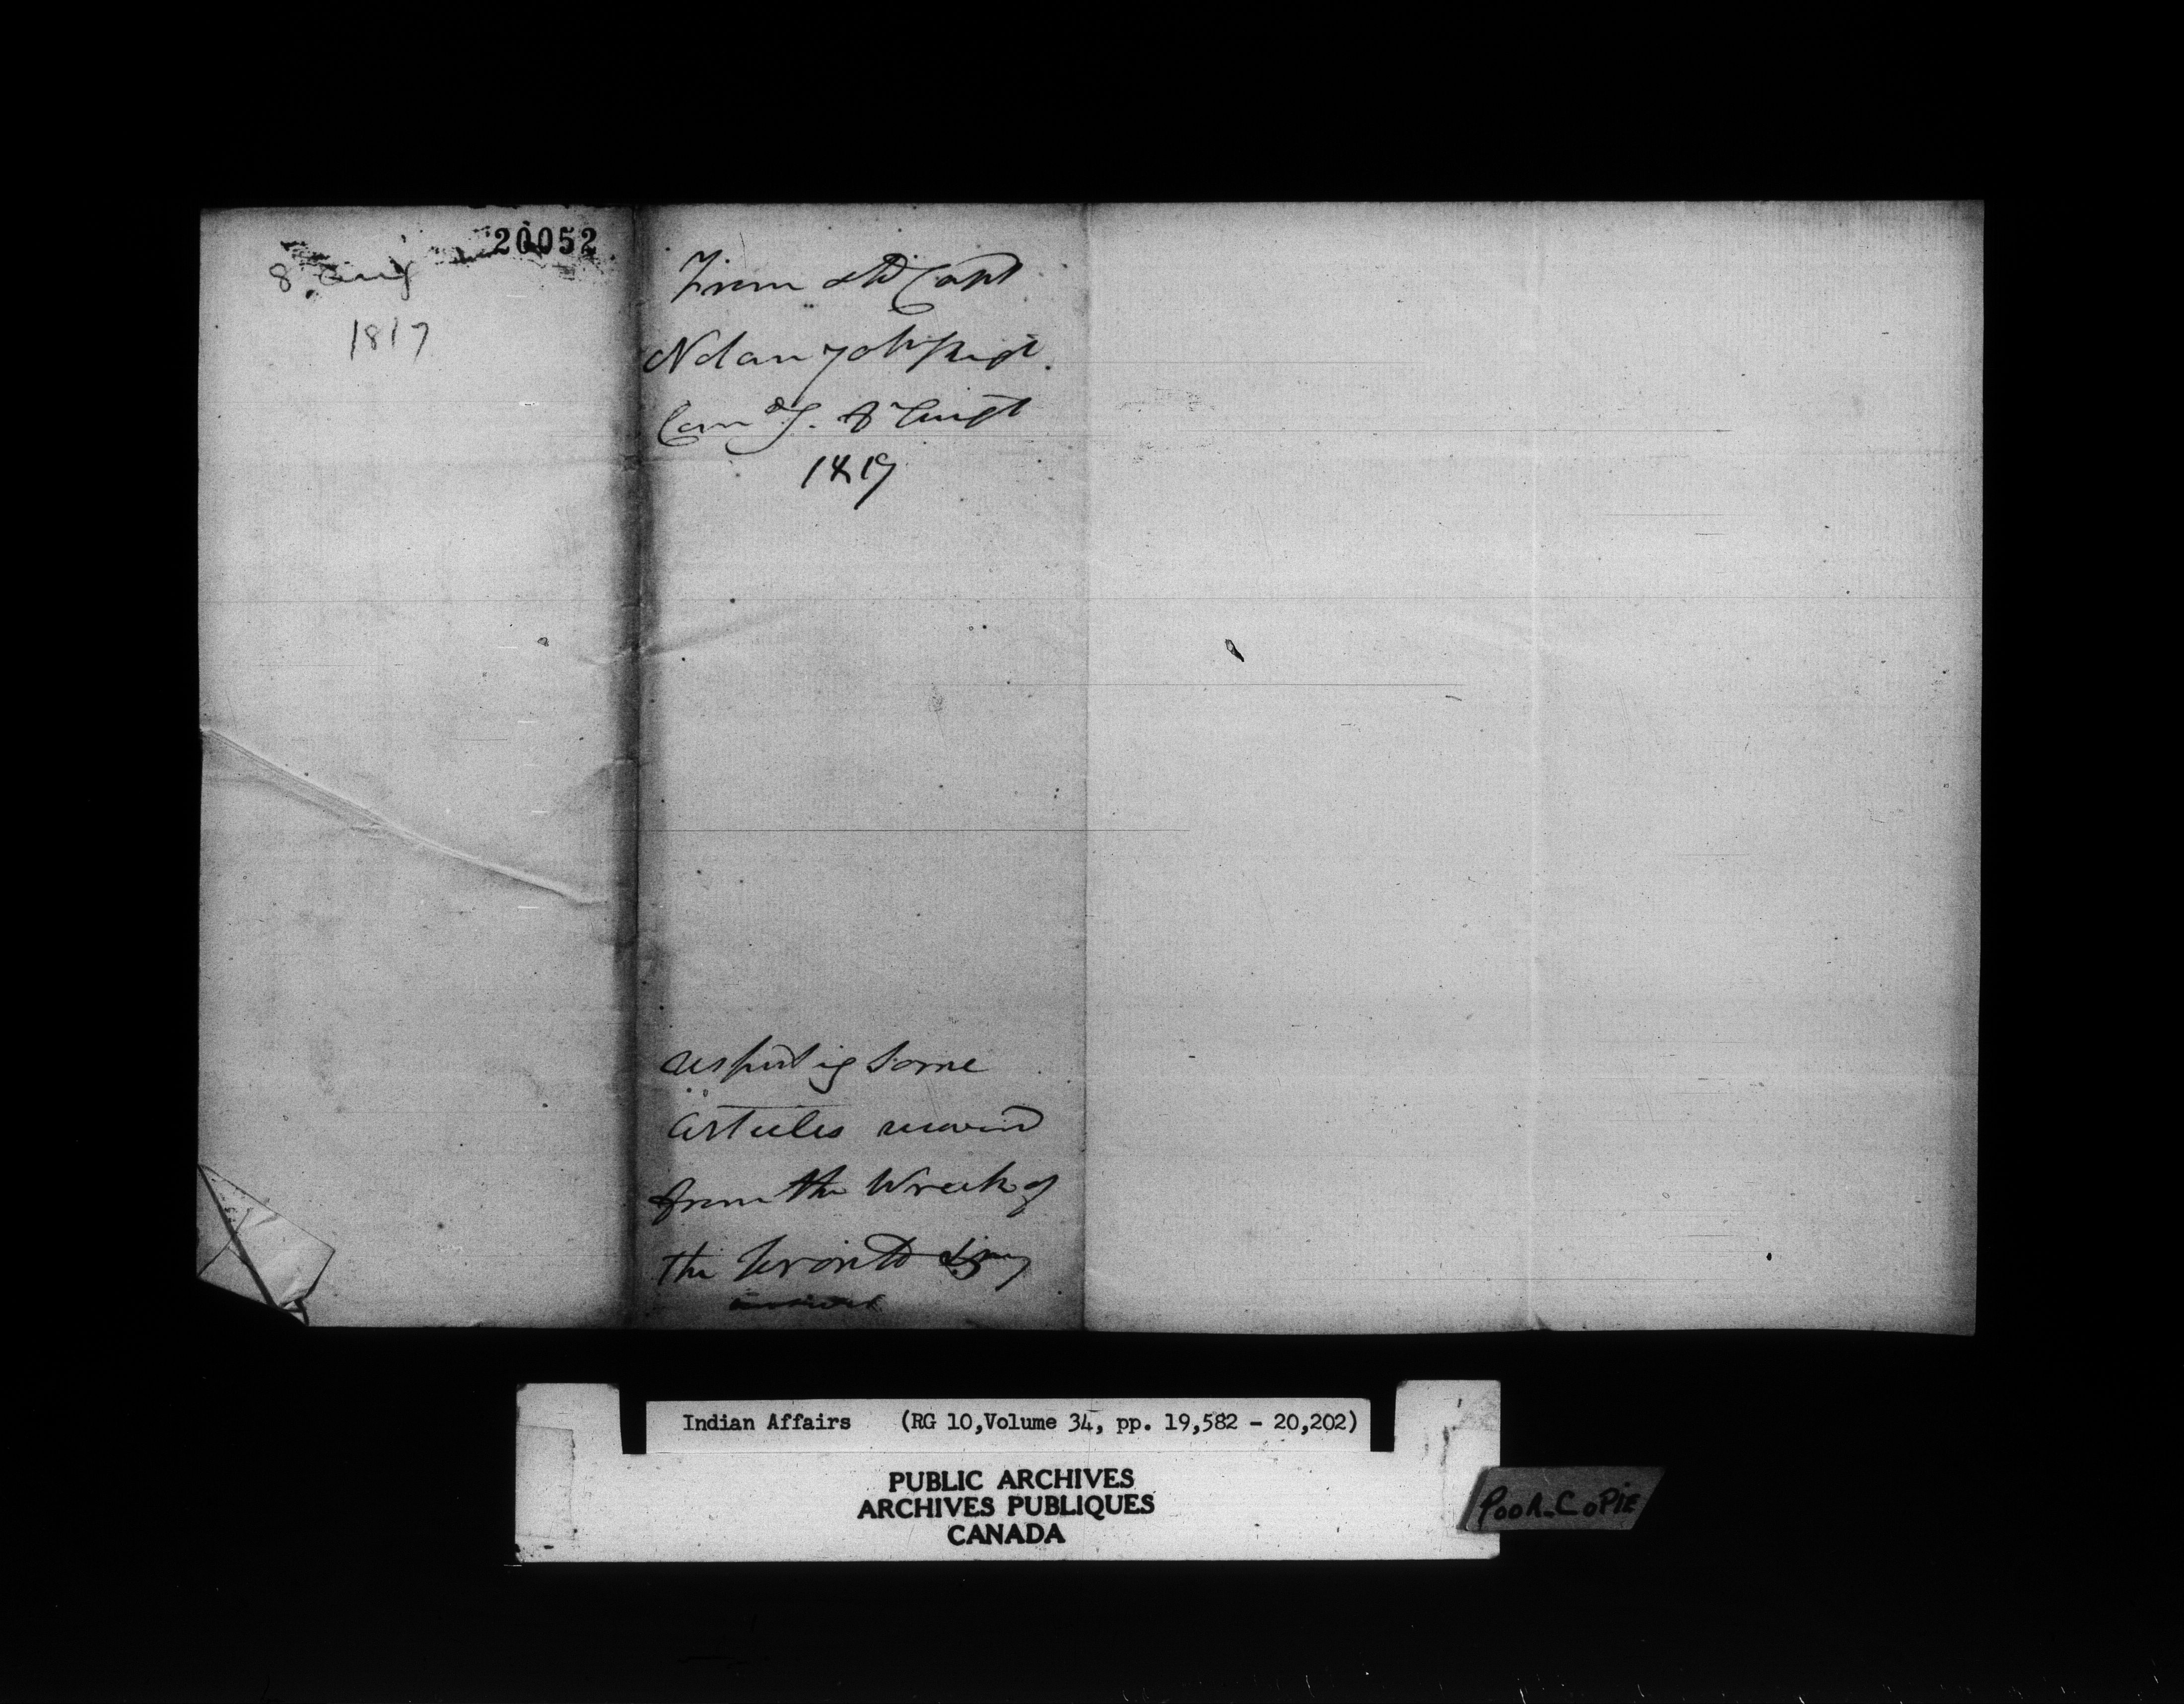 20052
8 Aug
1817
From Capt
Nolan 70th Regt.
Comdg. 8 Augt
1817
respectig Some
Articles recovered
from the Wreck of
the Toronto
Indian Affairs (RG 10, Volume 34, pp. 19,582 - 20,202)
PUBLIC ARCHIVES
ARCHIVES PUBLIQUES
CANADA
POOR COPIE